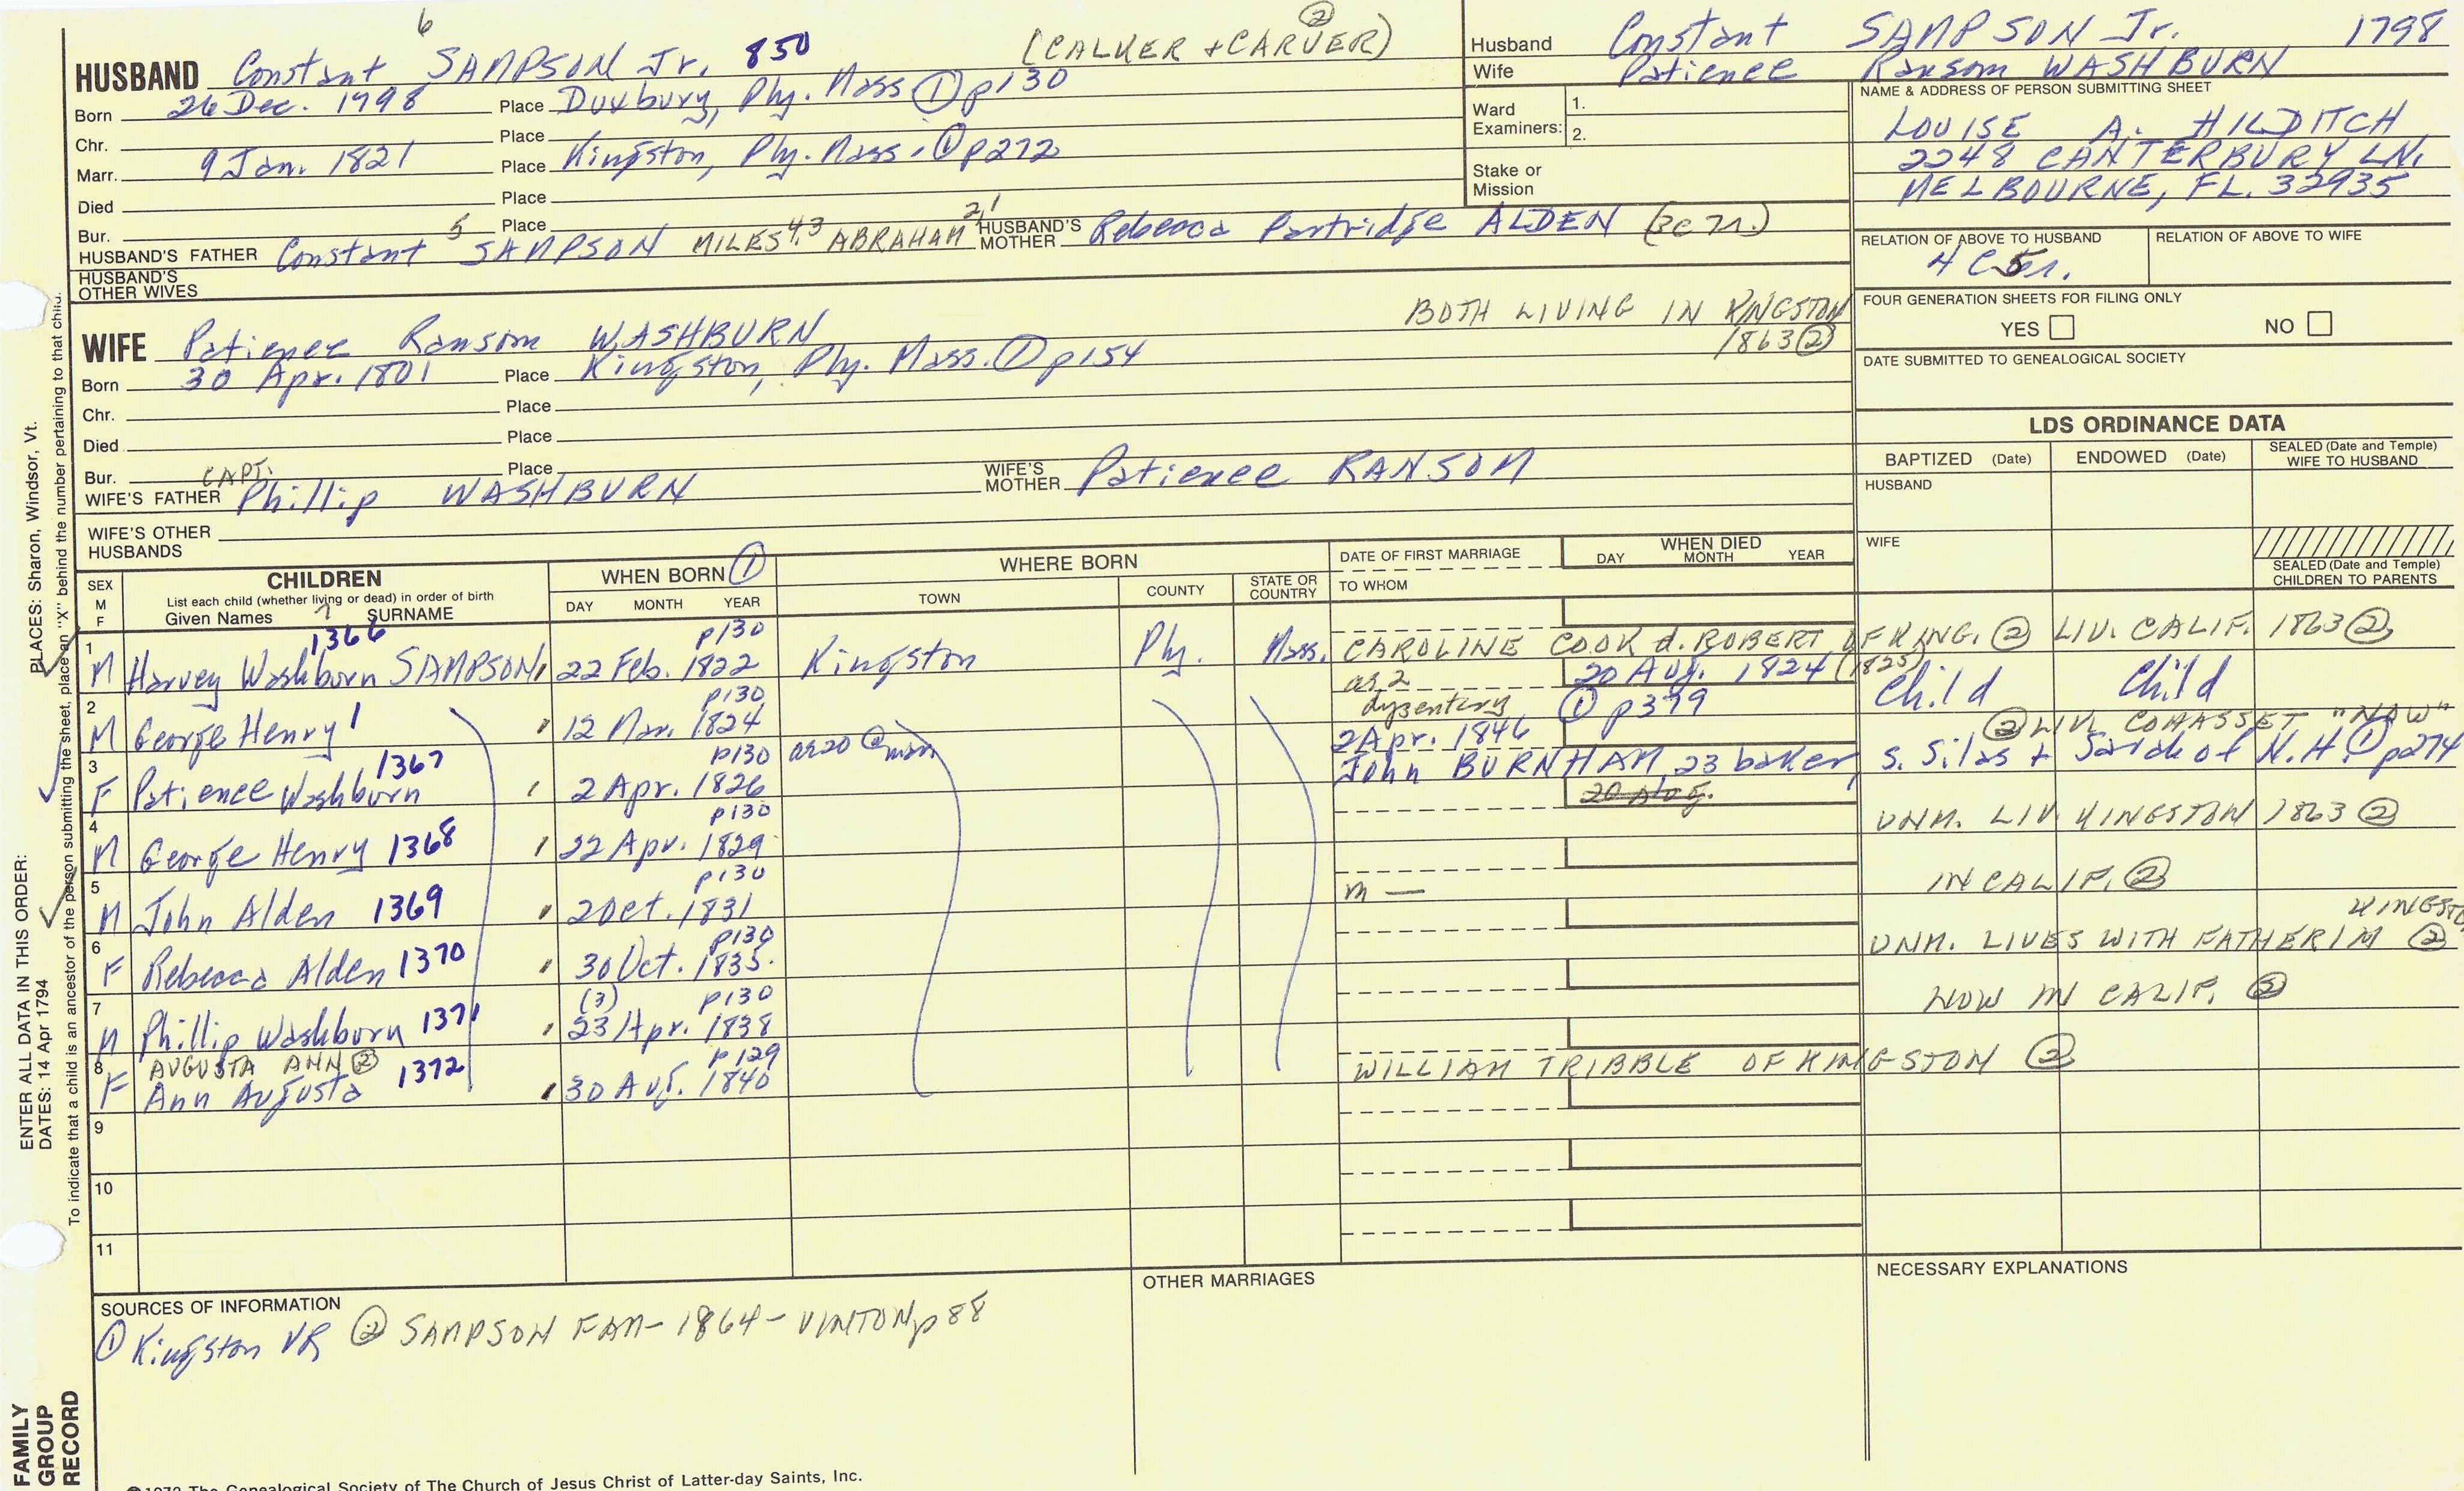 6
②
HUSBAND Constant SAMPSON Jr. 850 (CALKER + CARVER)
Born 26 Dec. 1798 Place Duxbury, Ply. Mass ① p130
Chr. Place
Marr. 9 Jan. 1821 Place Kingston, Ply. Mass. ① p272
Died Place
Bur. Place
HUSBAND'S FATHER Constant 5 SAMPSON MILES 4,3 ABRAHAM 2,1 HUSBAND'S MOTHER Rebecca Partridge ALDEN
HUSBAND'S OTHER WIVES
BOTH LIVING IN KINGSTON
1863 ②
WIFE Patience Ransom WASHBURN
Born 30 Apr. 1801 Place Kingston, Ply. Mass. ① p154
Chr. Place
Died Place
Bur. Place
WIFE'S FATHER CAPT. Phillip WASHBURN WIFE'S MOTHER Patience RANSOM
WIFE'S OTHER HUSBANDS
Husband Constant SAMPSON Jr. 1798
Wife Patience Ransom WASHBURN
Ward Examiners: 1.
2.
Stake or Mission
NAME & ADDRESS OF PERSON SUBMITTING SHEET
LOUISE A. HILDITCH
2248 CANTERBURY LN.
MELBOURNE, FL. 32935
RELATION OF ABOVE TO HUSBAND RELATION OF ABOVE TO WIFE
4 C 5 r.
FOUR GENERATION SHEETS FOR FILING ONLY
YES NO
DATE SUBMITTED TO GENEALOGICAL SOCIETY
LDS ORDINANCE DATA
BAPTIZED (Date) ENDOWED (Date) SEALED (Date and Temple) WIFE TO HUSBAND
HUSBAND
WIFE
SEALED (Date and Temple) CHILDREN TO PARENTS
SEX M F
CHILDREN
List each child (whether living or dead) in order of birth
Given Names SURNAME
WHEN BORN ①
DAY MONTH YEAR
WHERE BORN
TOWN COUNTY STATE OR COUNTRY
DATE OF FIRST MARRIAGE
TO WHOM
WHEN DIED
DAY MONTH YEAR
1 M Harvey Washburn SAMPSON 1366 22 Feb. 1822 p130 Kingston Ply. Mass. CAROLINE COOK d. ROBERT OF KING. ② LIV. CALIF. 1863 ②
2 M George Henry 12 Mar. 1824 p130 ae 2 dysentery 20 Aug. 1824 (1825) ① p379 Child Child
3 F Patience Washburn 1367 2 Apr. 1826 p130 ae 20 @ marr 2 Apr. 1846 John BURNHAM, 23 baker, s. Silas + Sarah of N.H. ① p274 ② LIV. COHASSET "NOW"
4 M George Henry 1368 22 Apr. 1829 p130 20 Aug. UNM. LIV. KINGSTON 1863 ②
5 M John Alden 1369 2 Oct. 1831 p130 m — IN CALIF. ②
6 F Rebecca Alden 1370 30 Oct. 1835 p130 UNM. LIVES WITH FATHER IM KINGSTO ②
7 M Phillip Washburn 1371 23 (3) Apr. 1838 p130 NOW IN CALIF. ②
8 F AUGUSTA ANN ② Ann Augusta 1372 30 Aug. 1840 p129 WILLIAM TRIBBLE OF KINGSTON ②
9
10
11
SOURCES OF INFORMATION
① Kingston VR ② SAMPSON FAM - 1864 - VINTON p88
OTHER MARRIAGES
NECESSARY EXPLANATIONS
©1972 The Genealogical Society of The Church of Jesus Christ of Latter-day Saints, Inc.
ENTER ALL DATA IN THIS ORDER:
DATES: 14 Apr 1794
PLACES: Sharon, Windsor, Vt.
To indicate that a child is an ancestor of the person submitting the sheet, place an "X" behind the number pertaining to that child.
FAMILY GROUP RECORD